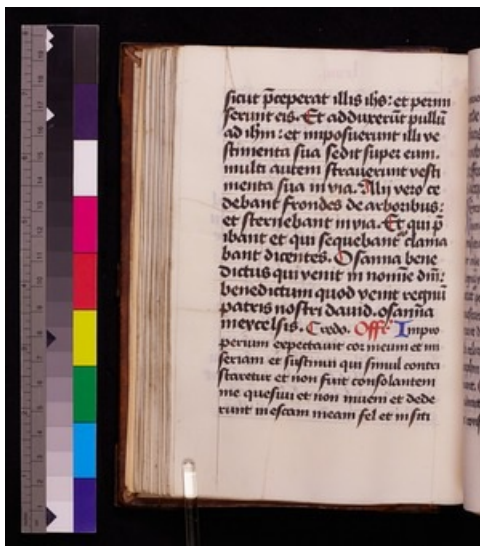 sicut p̄ceperat illis ihs: et permi
serunt eis. Et adduxerūt pullū
ad ihm: et imposuerunt illi ve
stimenta sua sedit super eum.
multi autem straverunt vesti
menta sua in via. Alij vero ce
debant frondes de arboribus:
et sternebant in via. Et qui p̄
ibant et qui sequebant clama
bant dicentes. Osanna bene
dictus qui venit in nomīe dm̄:
benedictum quod venit regnū
patris nostri david. osanna
in excelsis. Credo. Offe. Impro
perium expectavit cor meum et mi
seriam et sustinui qui simul contri
staretur et non fuit consolantem
me quesivi et non inveni et dede
runt in escam meam fel et in siti